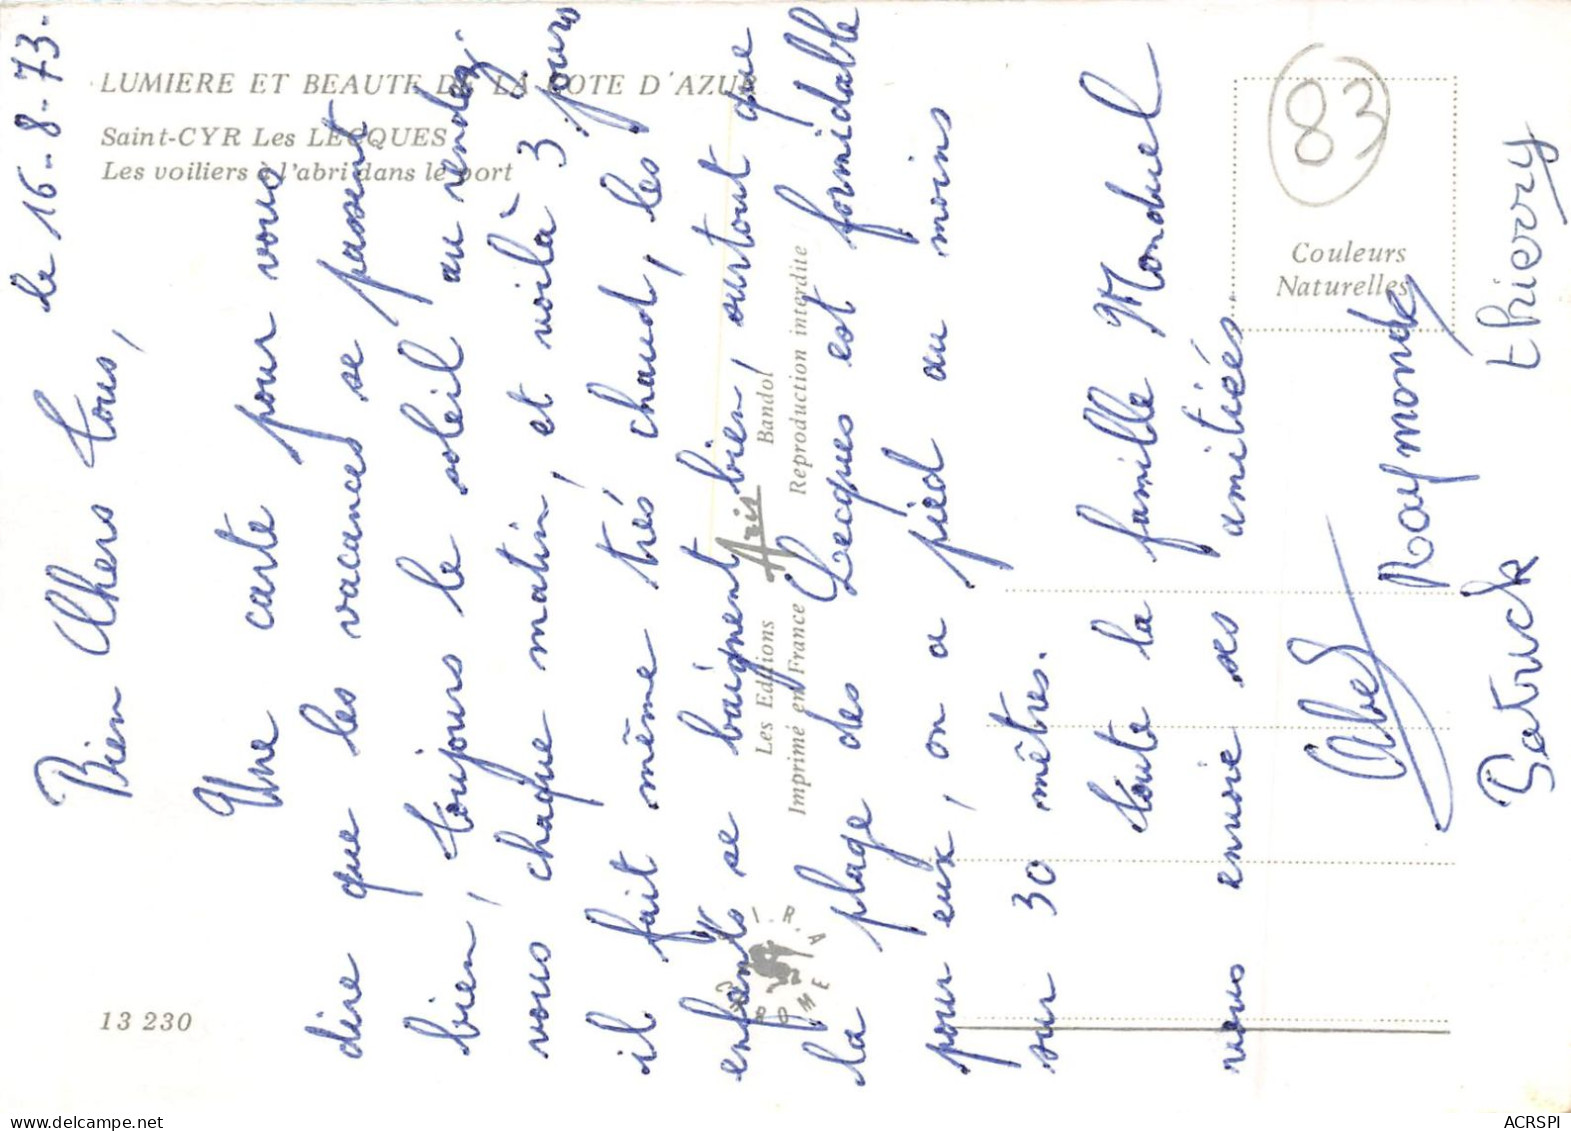 LUMIERE ET BEAUTE DE LA COTE D'AZUR
Saint-CYR Les LECQUES
Les voiliers à l'abri dans le port
83
Couleurs
Naturelles
Les Editions Aris Bandol
Imprimé en France Reproduction interdite
MEXICHROME
13 230
le 16-8-73-
Bien Chers tous,
Une carte pour vous
dire que les vacances se passent
bien, toujours le soleil au rendez-
vous chaque matin, et voilà 3 jours
il fait même trés chaud, les
enfants se baignent bien, surtout que
la plage des Lecques est formidable
pour eux, on a pied au moins
sur 30 mêtres.
toute la famille Monduel
vous envoie ses amitiées.
Abel Raymonde
Patrick thierry
ACRSPI